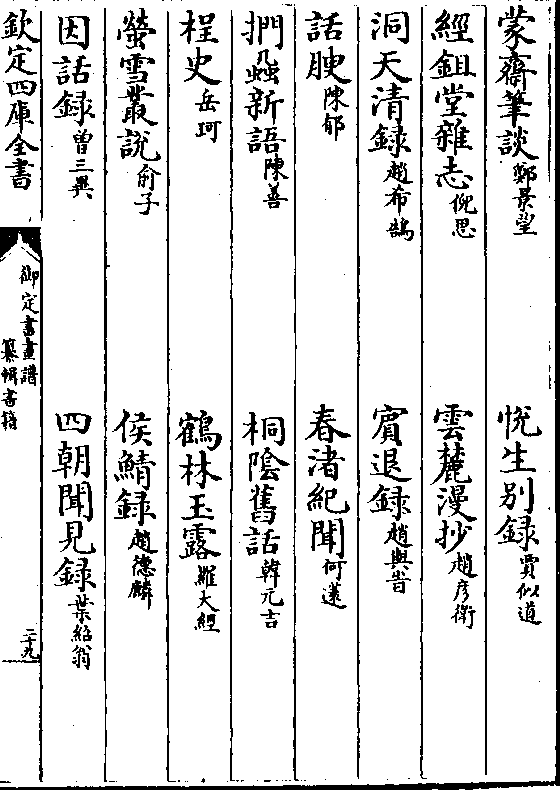 蒙齋筆談鄭景望 悅生別録賈似道
經鉏堂雜志倪思 雲麓漫抄趙彦衛
洞天清録趙希鵠 賓退録趙與旹
話腴陳郁 春渚紀聞何薳
捫蝨新語陳善 桐陰舊話韓元吉
桯史岳珂 鶴林玉露羅大經
螢雪叢說俞子 侯鯖録趙德麟
因話録曾三異 四朝聞見録葉紹翁
欽定四庫全書 御定書畫譜 纂輯書籍 二十九